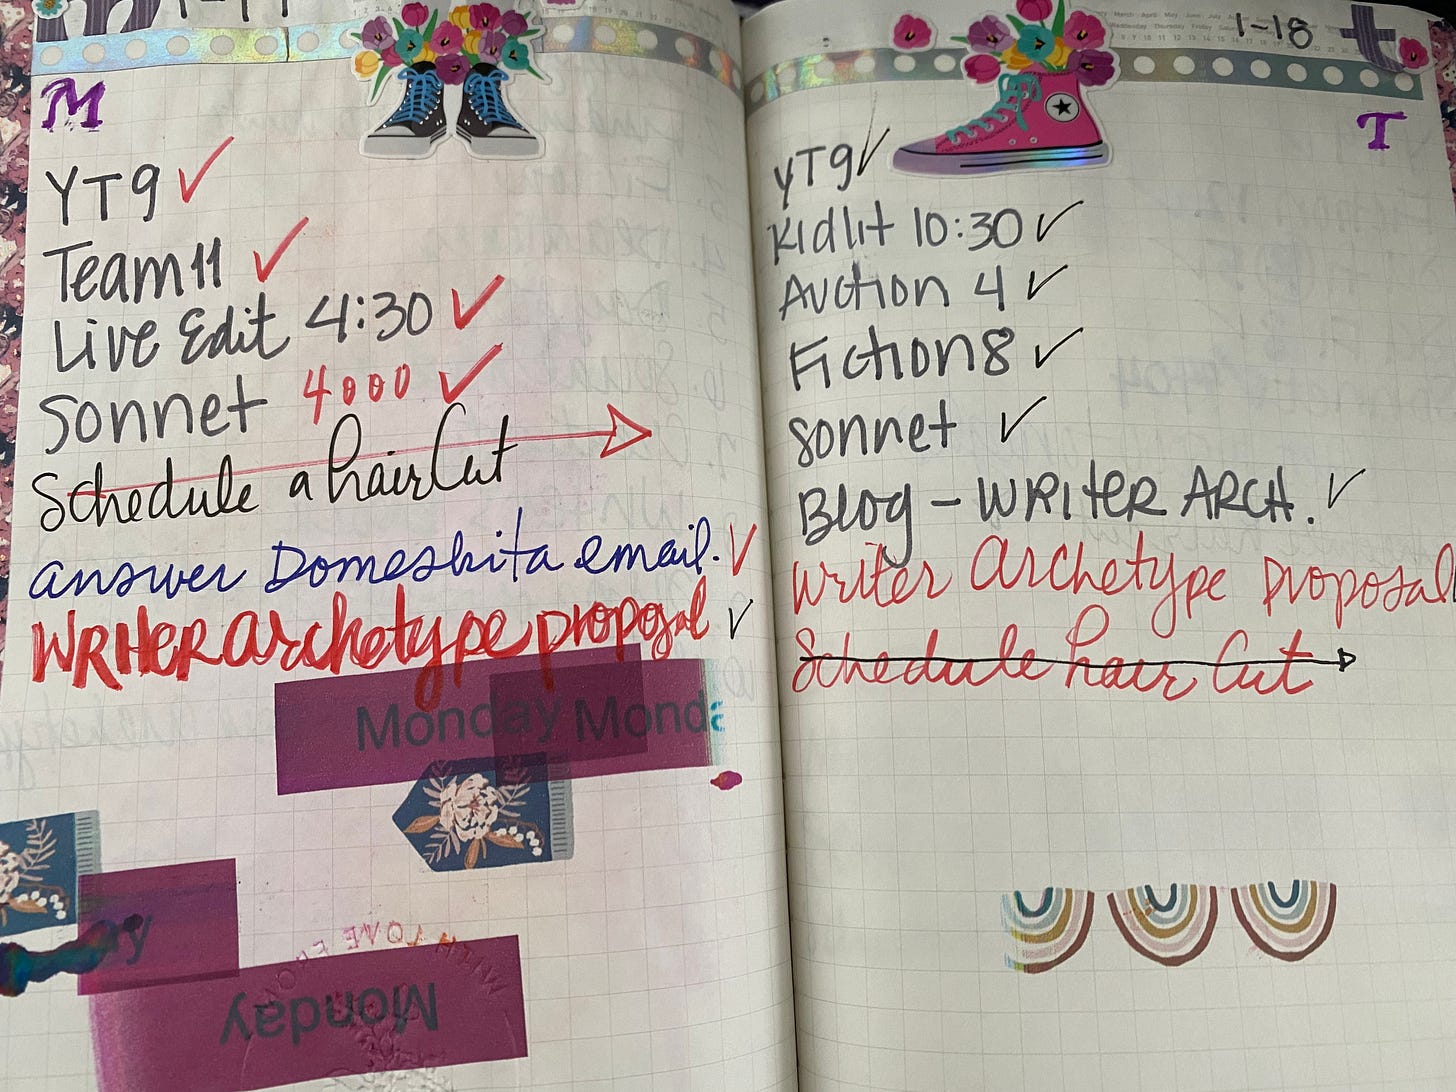 1-17
M
YT9 ✓
Team 11 ✓
Live Edit 4:30 ✓
Sonnet 4000 ✓
Schedule a hair Cut
answer Domeskita email. ✓
WRITER archetype proposal ✓
Monday Monda
ay
WITH LOVE FROM
Monday
1-18
T
YT9 ✓
Kidlit 10:30 ✓
Auction 4 ✓
Fiction 8 ✓
sonnet ✓
Blog - WRITER ARCH. ✓
Writer archetype proposal
Schedule hair Cut